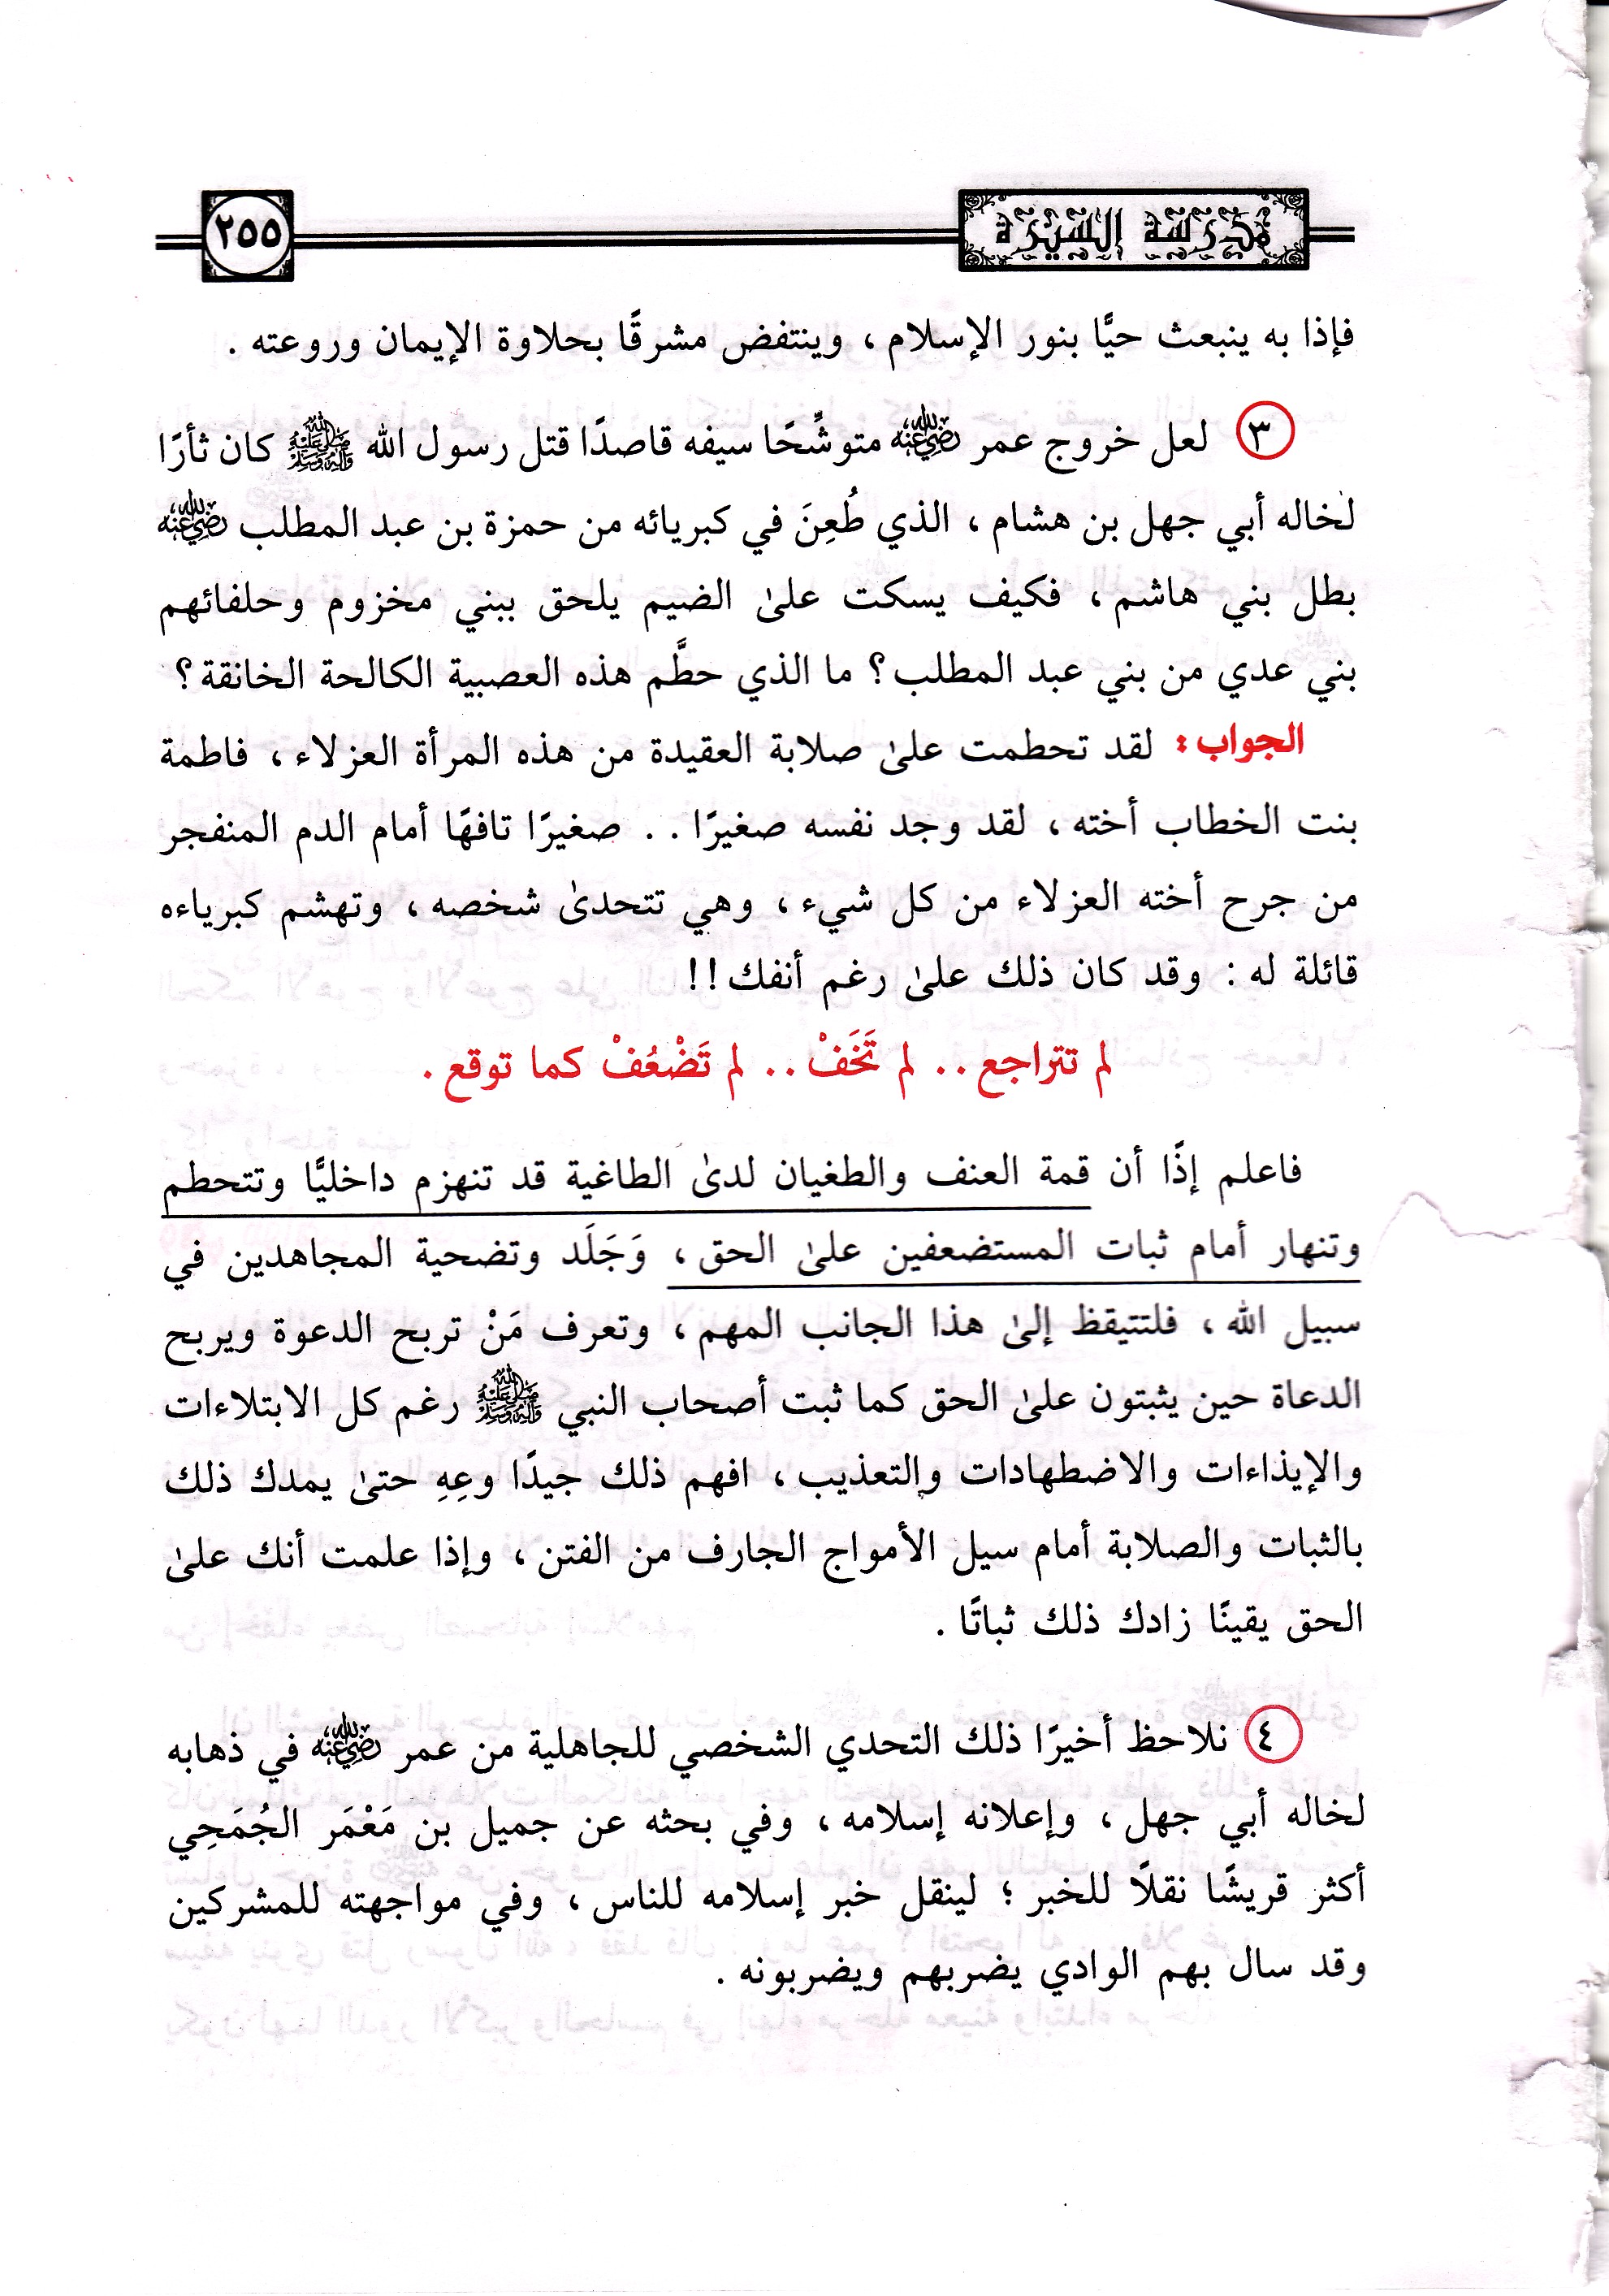 مدرسة السيرة
٢٥٥
فإذا به ينبعث حيًّا بنور الإسلام ، وينتفض مشرقًا بحلاوة الإيمان وروعته .
٣ لعل خروج عمر رضي الله عنه متوشِّحًا سيفه قاصدًا قتل رسول الله ﷺ كان ثأرًا
لخاله أبي جهل بن هشام ، الذي طُعِنَ في كبريائه من حمزة بن عبد المطلب رضي الله عنه
بطل بني هاشم ، فكيف يسكت علىٰ الضيم يلحق ببني مخزوم وحلفائهم
بني عدي من بني عبد المطلب ؟ ما الذي حطَّم هذه العصبية الكالحة الخانقة ؟
الجواب : لقد تحطمت علىٰ صلابة العقيدة من هذه المرأة العزلاء ، فاطمة
بنت الخطاب أخته ، لقد وجد نفسه صغيرًا . . صغيرًا تافهًا أمام الدم المنفجر
من جرح أخته العزلاء من كل شيء ، وهي تتحدىٰ شخصه ، وتهشم كبرياءه
قائلة له : وقد كان ذلك علىٰ رغم أنفك !!
لم تتراجع . . لم تَخَفْ . . لم تَضْعُفْ كما توقع .
فاعلم إذًا أن قمة العنف والطغيان لدىٰ الطاغية قد تنهزم داخليًّا وتتحطم
وتنهار أمام ثبات المستضعفين علىٰ الحق ، وَجَلَد وتضحية المجاهدين في
سبيل الله ، فلتتيقظ إلىٰ هذا الجانب المهم ، وتعرف مَنْ تربح الدعوة ويربح
الدعاة حين يثبتون علىٰ الحق كما ثبت أصحاب النبي ﷺ رغم كل الابتلاءات
والإيذاءات والاضطهادات والتعذيب ، افهم ذلك جيدًا وعِهِ حتىٰ يمدك ذلك
بالثبات والصلابة أمام سيل الأمواج الجارف من الفتن ، وإذا علمت أنك علىٰ
الحق يقينًا زادك ذلك ثباتًا .
٤ نلاحظ أخيرًا ذلك التحدي الشخصي للجاهلية من عمر رضي الله عنه في ذهابه
لخاله أبي جهل ، وإعلانه إسلامه ، وفي بحثه عن جميل بن مَعْمَر الجُمَحِي
أكثر قريشًا نقلًا للخبر ؛ لينقل خبر إسلامه للناس ، وفي مواجهته للمشركين
وقد سال بهم الوادي يضربهم ويضربونه .